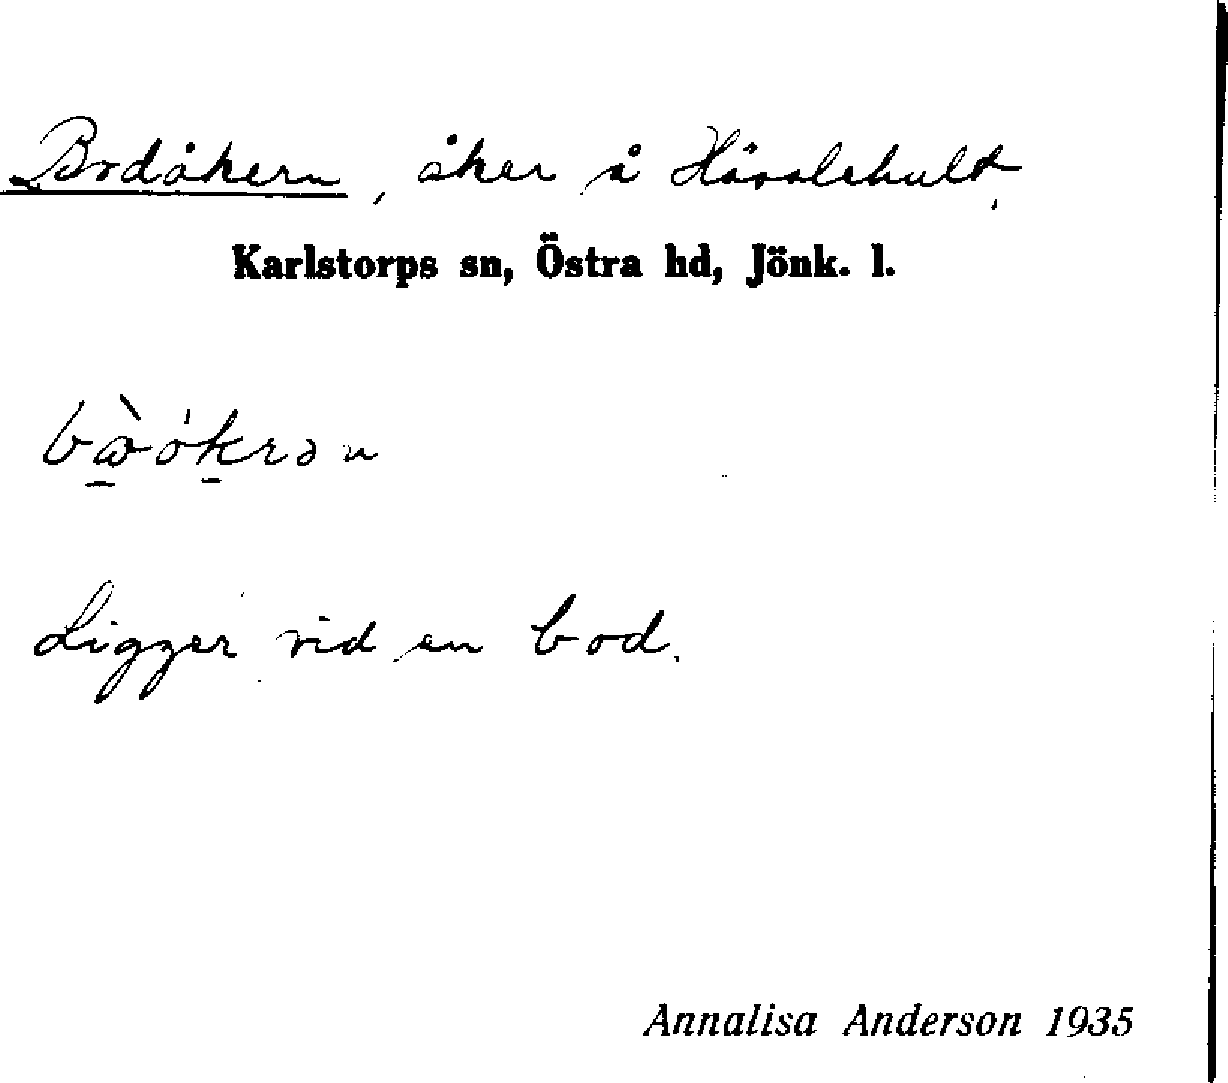 Bodåkern, åker å Hässlehult,
Karlstorps sn, Östra hd, Jönk. l.
Ligger vid en bod.
Annalisa Anderson 1935